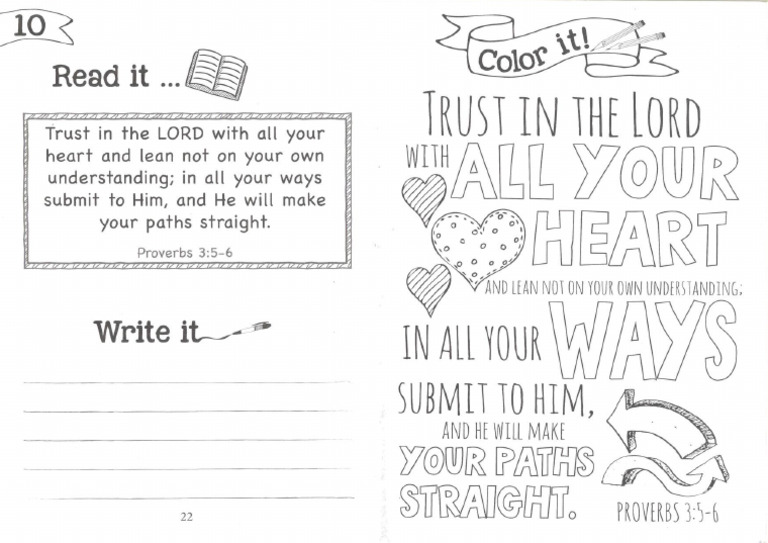 10
Read it ...
Trust in the LORD with all your
heart and lean not on your own
understanding; in all your ways
submit to Him, and He will make
your paths straight.
Proverbs 3:5-6
Write it
22
Color it!
TRUST IN THE LORD
WITH ALL YOUR
HEART
AND LEAN NOT ON YOUR OWN UNDERSTANDING;
IN ALL YOUR WAYS
SUBMIT TO HIM,
AND HE WILL MAKE
YOUR PATHS
STRAIGHT.
PROVERBS 3:5-6